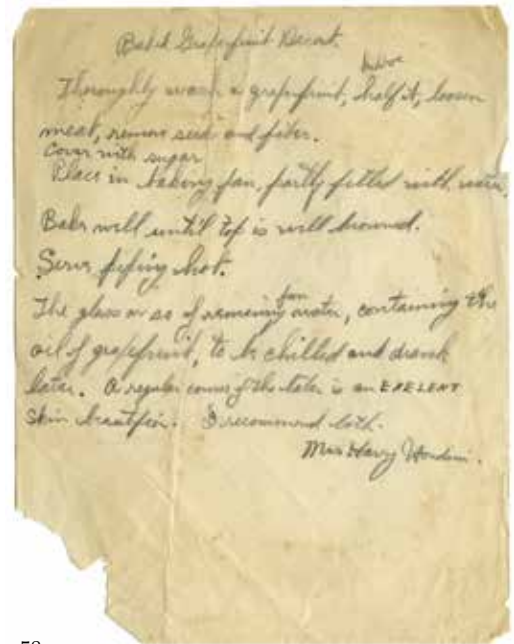 Baked Grapefruit Desert.
halve
Thoroughly wash a grapefruit, half it, loosen
meat, remove seeds and fiber.
Cover with sugar
Place in baking pan, partly filled with water.
Bake well until top is well browned.
Serve piping hot.
pan
The glass or so of remaining water, containing the
oil of grapefruit, to be chilled and drank
later. A regular course of the later is an EXELENT
skin beautifier. I recommend both.
Mrs Harry Houdini.